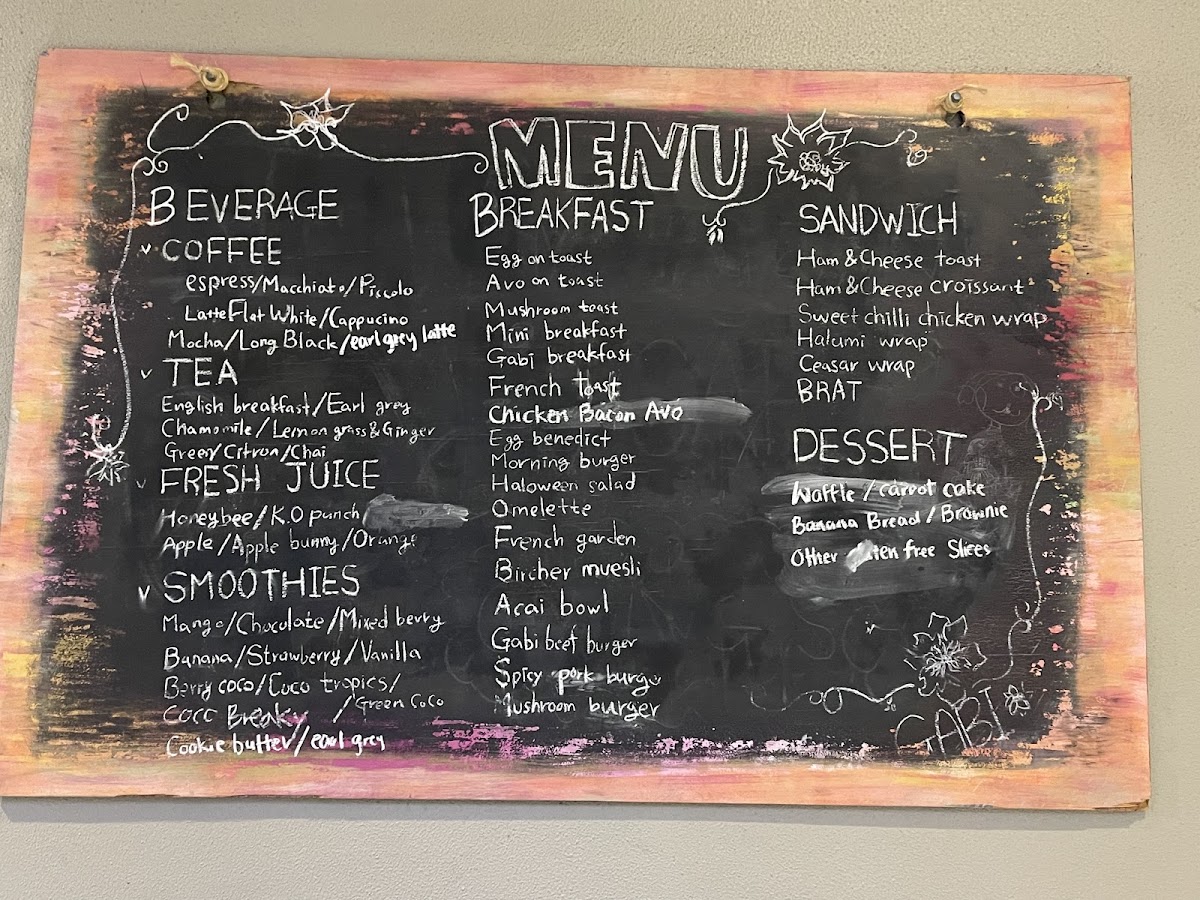 MENU
BEVERAGE
COFFEE
espress/Macchiato/Piccolo
Latte Flat White/Cappucino
Mocha/Long Black/earl grey latte
TEA
English breakfast/Earl grey
Chamomile/Lemon grass & Ginger
Green/Citron/Chai
FRESH JUICE
Honeybee/K.O punch
Apple/Apple bunny/Orange
SMOOTHIES
Mango/Chocolate/Mixed berry
Banana/Strawberry/Vanilla
Berry coco/Coco tropics/
Coco Breaky /Green Coco
Cookie butter/earl grey
BREAKFAST
Egg on toast
Avo on toast
Mushroom toast
Mini breakfast
Gabi breakfast
French toast
Chicken Bacon Avo
Egg benedict
Morning burger
Haloween salad
Omelette
French garden
Bircher muesli
Acai bowl
Gabi beef burger
Spicy pork burge
Mushroom burger
SANDWICH
Ham & Cheese toast
Ham & Cheese croissant
Sweet chilli chicken wrap
Halumi wrap
Ceasar wrap
BRAT
DESSERT
Waffle / carrot cake
Banana Bread / Brownie
Other free Slices
GABI